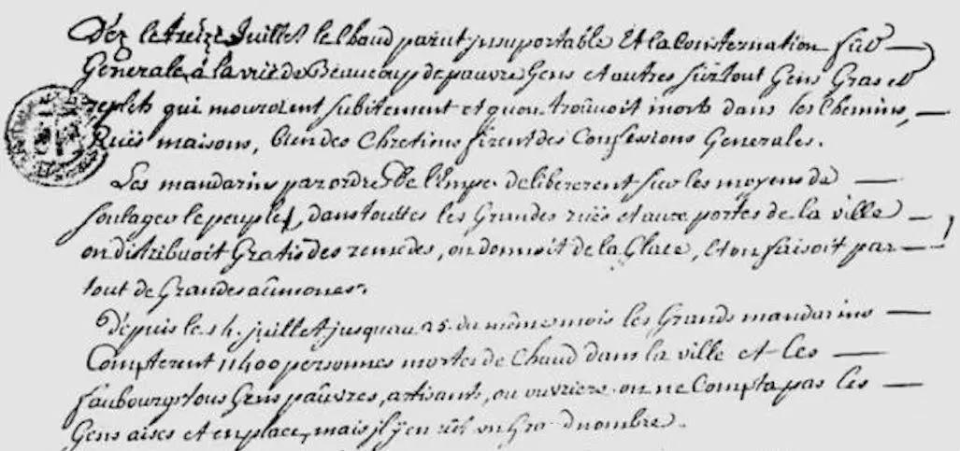 Dez le treize Juillet le Chaud parut jnsuportable Et la Consternation fut
Generale, à la vüe de Beaucoup de pauvre Gens et autres surtout Gens Gras et
replets qui mouroient subitement et qu'on trouvoit morts dans les Chemins,
Ruës maisons, bien des Chretiens firent des Confessions Generales.
Les mandarins par ordre de l'Empr. delibererent sur les moyens de
soulager le peuple, dans touttes les Grandes ruës et aux portes de la ville
on distribuoit Gratis des remedes, on donnoit de la Glace, et on faisoit par
tout de Grandes aûmones.
Depuis le 14. juillet jusquau 25. du même mois les Grands mandarins
Compterent 11400 personnes mortes de Chaud dans la ville et les
faubourgs tous Gens paûvres, artisants, ou ouvriers on ne Compta pas les
Gens aises et en place, mais jl y en eût un Grand nombre.